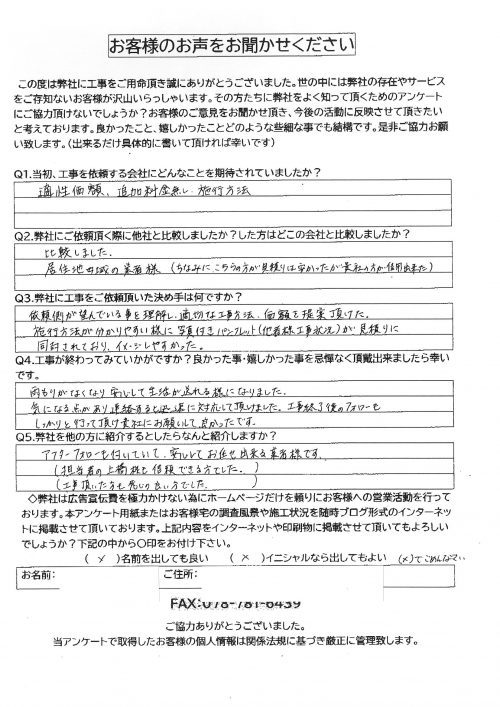 お客様のお声をお聞かせください
この度は弊社に工事をご用命頂き誠にありがとうございました。世の中には弊社の存在やサービス
をご存知ないお客様が沢山いらっしゃいます。その方たちに弊社をよく知って頂くためのアンケート
にご協力頂けないでしょうか？お客様のご意見をお聞かせ頂き、今後の活動に反映させて頂きたい
と考えております。良かったこと、嬉しかったことどのような些細な事でも結構です。是非ご協力お願
い致します。（出来るだけ具体的に書いて頂ければ幸いです）
Q1.当初、工事を依頼する会社にどんなことを期待されていましたか？
適性価額、追加料金無し、施行方法
Q2.弊社にご依頼頂く際に他社と比較しましたか？した方はどこの会社と比較しましたか？
比較しました。
居住地地域の業者様（ちなみにこちらの方が見積りは安かったが貴社の方が信用出来た）
Q3.弊社に工事をご依頼頂いた決め手は何ですか？
依頼側が望んでいる事を理解し、適切な工事方法、価額を提案頂けた。
施行方法が分かりやすい様に写真付きパンフレット（他者様工事状況）が見積りに
同封されており、イメージしやすかった。
Q4.工事が終わってみていかがですか？良かった事・嬉しかった事を忌憚なく頂戴出来ましたら幸い
です。
雨もりがなくなり安心して生活が送れる様になりました。
気になる点があり連絡すると迅速に対応して頂けました。工事終了後のフォローも
しっかりと行って頂け貴社にお願いして良かったです。
Q5.弊社を他の方に紹介するとしたらなんと紹介しますか？
アフターフォローも付いていて、安心してお任せ出来る業者様です。
（担当者の上村様も信頼できる方でした。）
（工事頂いた方も感じの良い方でした。）
◇弊社は広告宣伝費を極力かけない為にホームページだけを頼りにお客様への営業活動を行って
おります。本アンケート用紙またはお客様宅の調査風景や施工状況を随時ブログ形式のインターネッ
トに掲載させて頂いております。上記内容をインターネットや印刷物に掲載させて頂いてもよろしい
でしょうか？下記の中から〇印をお付け下さい。
（ × ）名前を出しても良い （ × ）イニシャルなら出してもよい （×）でごめんなさい
お名前： ご住所：
FAX:078-781-6439
ご協力ありがとうございました。
当アンケートで取得したお客様の個人情報は関係法規に基づき厳正に管理致します。